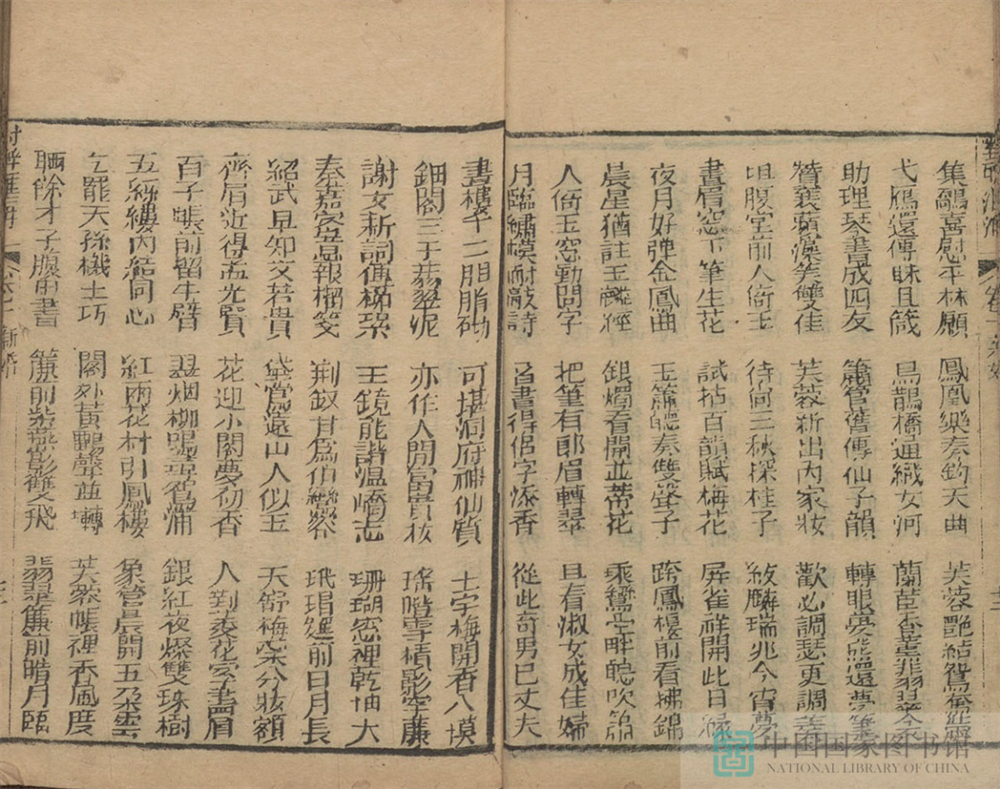 集鷸喜慰平林願 鳳凰樂奏鈞天曲 芙蓉艷結鴛鴦
弋鴈還傳昧旦箴 烏鵲橋通織女河 蘭茝香熏翡翠衾
助理琴書成四友 簫管舊傳仙子韻 轉眼夢熊還夢筆
贊襄蘋藻筭雙佳 芙蓉新出內家妝 歡心調瑟更調羹
坦腹堂前人倚玉 待向三秋探桂子 麟瑞兆今宵夢
畫眉窓下筆生花 試拈百韻賦梅花 屏雀祥開此日緣
夜月好彈金鳳曲 玉簫聽奏雙聲子 跨鳳樓前看拂錦
晨星猶註玉麟經 銀燭看開並蒂花 乘鸞亭畔聽吹簫
人倚玉窓勤問字 把筆有郎眉轉翠 且看淑女成佳婦
月臨繡模耐敲詩 習書得侣字添香 從此奇男已丈夫
畫樓十二胭脂砌 可堪洞府神仙質 士字梅開香八漠
鈿閣三千翡翠泥 亦作人間富貴妝 瑤雪積影穿簾
謝女新詞傳綵 王鏡能諧溫嶠志 珊瑚窓裡乾坤大
奉嘉宴意報榴箋 荆釵甘為伯鸞裝 玳瑁筵前日月長
紹武早知文若貴 黛當遠山人似玉 天舒梅朵分妝額
齊眉近得孟光賢 花迎小閣慶初香 人對菱花家畫眉
百子帳前留半臂 翠烟柳鴛浦 銀紅夜燦雙珠樹
五絲縷內結同心 紅雨花村引鳳樓 象管晨開五朶雲
乞罷天孫機上巧 閣外黃鸝聲並轉 芙蓉帳裡香風度
晒餘才子腹中書 簾前紫燕影雙飛 翡翠簾前晴月臨
中国国家图书馆
NATIONAL LIBRARY OF CHINA